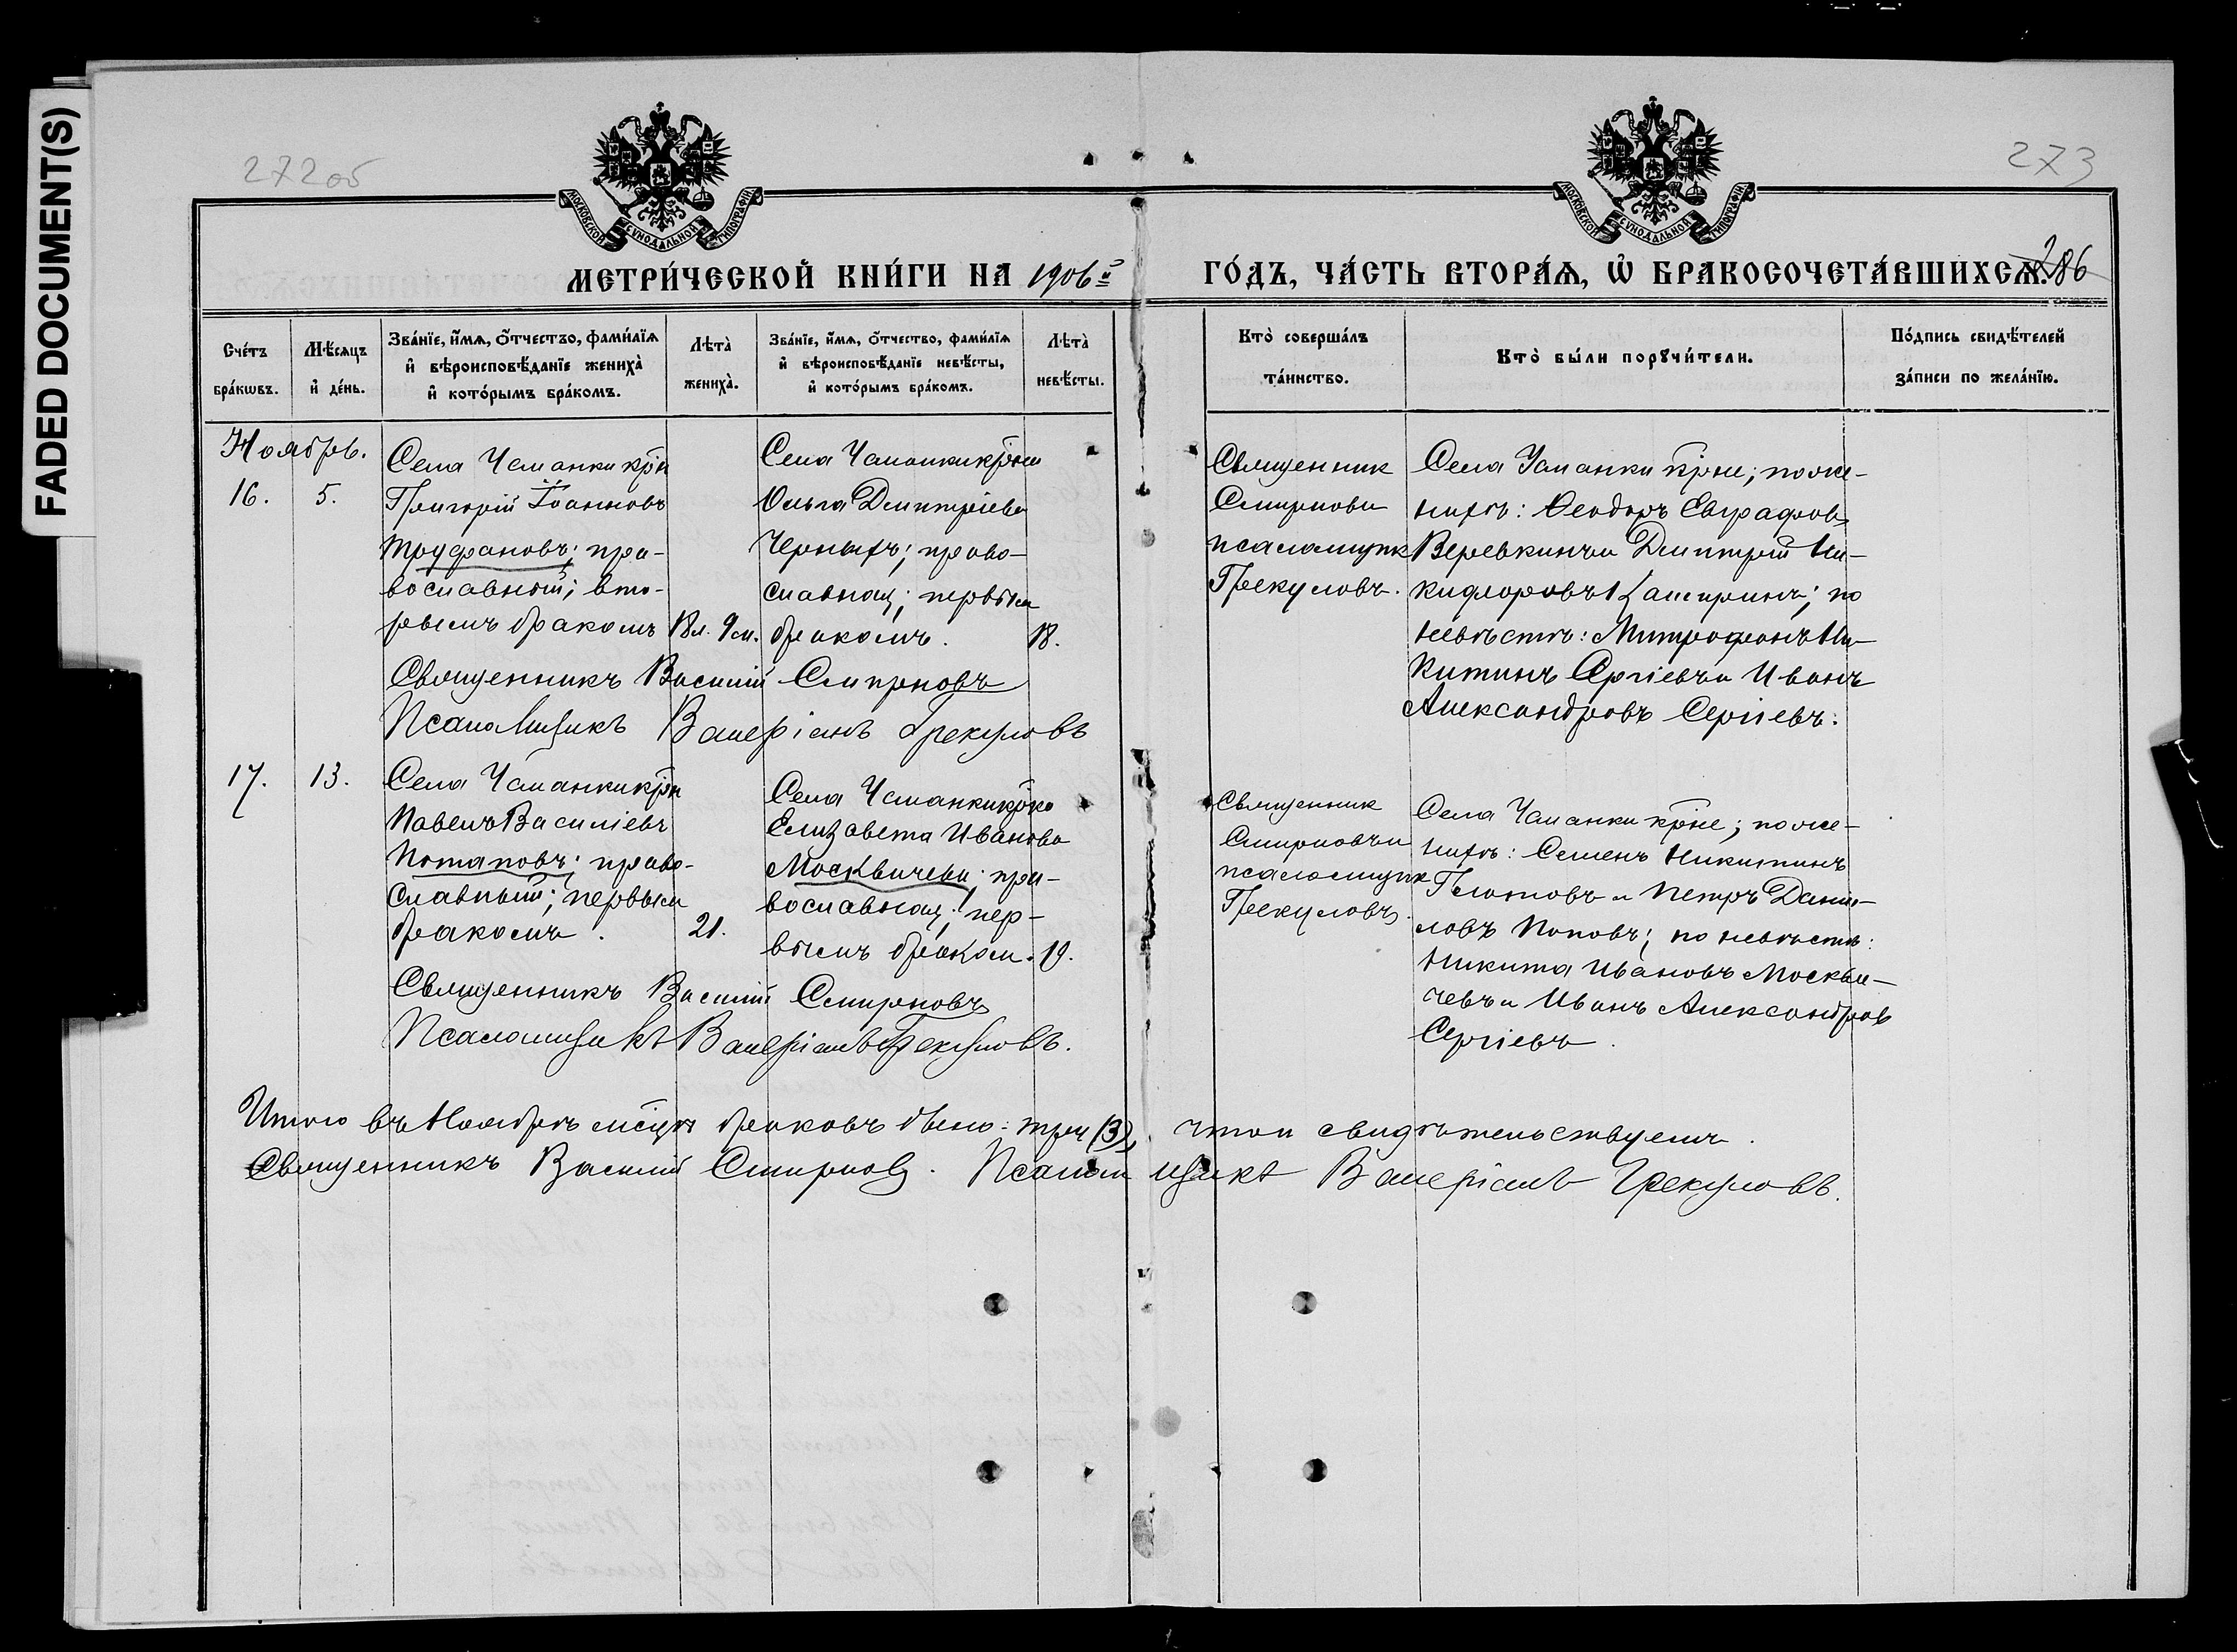 FADED DOCUMENT(S)
272об
273
МОСКОВСКОЙ СУНОДАЛЬНОЙ ТИПОГРАФІИ
МОСКОВСКОЙ СУНОДАЛЬНОЙ ТИПОГРАФІИ
МЕТРИ́ЧЕСКОЙ КНИ́ГИ НА 1906й
ГО́ДЪ, ЧА́СТЬ ВТОРА́Ѧ, Ѽ БРАКОСОЧЕТА́ВШИХСѦ.
286
Сче́тъ
бра́кѡвъ.
Мѣ́сяцъ
и҆ де́нь.
Зва́нїе, и҆́мѧ, ѻ҆́тчество, фами́лїѧ
и҆ вѣроисповѣ́данїе жениха̀
и҆ кото́рымъ бра́комъ.
Лѣта̀
жениха̀.
Зва́нїе, и҆́мѧ, ѻ҆́тчество, фами́лїѧ
и҆ вѣроисповѣ́данїе невѣ́сты,
и҆ кото́рымъ бра́комъ.
Лѣта̀
невѣ́сты.
Кто̀ соверша́лъ
та́инство.
Кто̀ бы́ли порꙋчи́тели.
По́дпись свидѣ́телей
за́писи по жела́нїю.
Ноябрь.
16.
5.
Села Усманки крн
Григорій Іоанновъ
Труфановъ; пра-
вославный; вто-
рымъ бракомъ
18 л. 9 м.
Села Усманки крнш
Ольга Дмитріева
Черныхъ; право-
славная; первым
бракомъ.
18.
Священник
Смирнов и
псаломщик
Грекуловъ.
Села Усманки крне; по же-
нихѣ: Ѳеодоръ Евграфов
Веревкинъ и Дмитрій Ни-
кифоровъ Каширинъ; по
невѣстѣ: Митрофанъ Ни-
китинъ Сергіевъ и Иванъ
Александровъ Сергіевъ.
Священникъ Василій Смирновъ
Псаломщикъ Валеріанъ Грекуловъ
17.
13.
Села Усманки крн
Павелъ Василіевъ
Потаповъ; право-
славный; первым
бракомъ.
21.
Села Усманки крнка
Елизавета Иванова
Москвичева; пра-
вославная; пер-
вымъ браком.
19.
Священник
Смирновъ и
псаломщик
Грекуловъ.
Села Усманки крне; по же-
нихѣ: Семенъ Никитинъ
Глотовъ и Петръ Дани-
ловъ Поповъ; по невѣстѣ:
Никита Ивановъ Москви-
чевъ и Иванъ Александров
Сергіевъ.
Священникъ Василій Смирновъ
Псаломщикъ Валеріанъ Грекуловъ.
Итого въ Ноябрѣ мсцѣ браковъ было: три (3), что и свидѣтельствуемъ.
Священникъ Василій Смирновъ. Псаломщикъ Валеріанъ Грекуловъ.